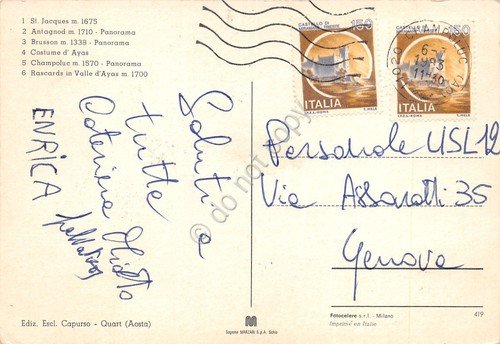 1 St. Jacques m. 1675
2 Antagnod m. 1710 - Panorama
3 Brusson m. 1338 - Panorama
4 Costume d' Ayas
5 Champoluc m. 1570 - Panorama
6 Rascards in Valle d'Ayas m. 1700
CASTELLO DI
150
ITALIA
I.P.Z.S.-ROMA
CASTELLO DI
150
6-7
1983
11-30
ITALIA
I.P.Z.S.-ROMA
Saluti a
tutte
Caterina
ENRICA
Personale USL 12
Via Assarotti 35
Genova
do not copy
Ediz. Escl. Capurso - Quart (Aosta)
Fotocelere s.r.l. - Milano
Imprimé en Italie
419